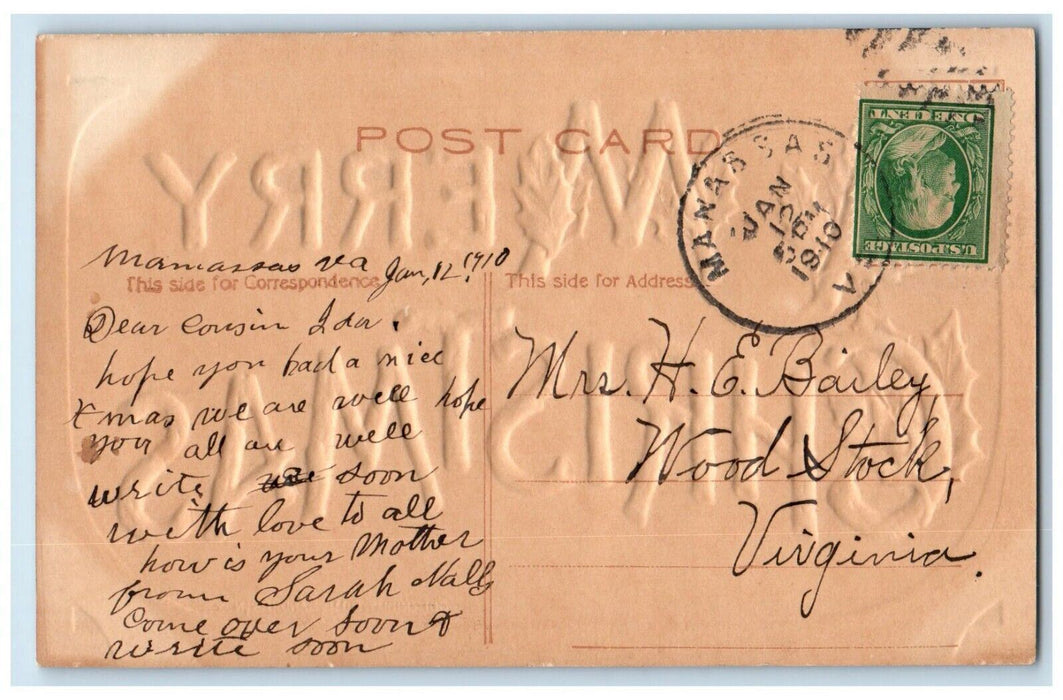 POST CARD
MANASSAS
JAN
12
6 PM
1910
VA
ONE CENT
U.S. POSTAGE
MERRY
CHRISTMAS
Manassas Va Jan, 12, 1910
This side for Correspondence
This side for Address
Dear Cousin Ida.
hope you had a nice
Xmas we are well hope
you all are well
write soon
with love to all
how is your Mother
from Sarah Nalls
Come over soon &
write soon
Mrs. H. E. Bailey,
Wood Stock,
Virginia.